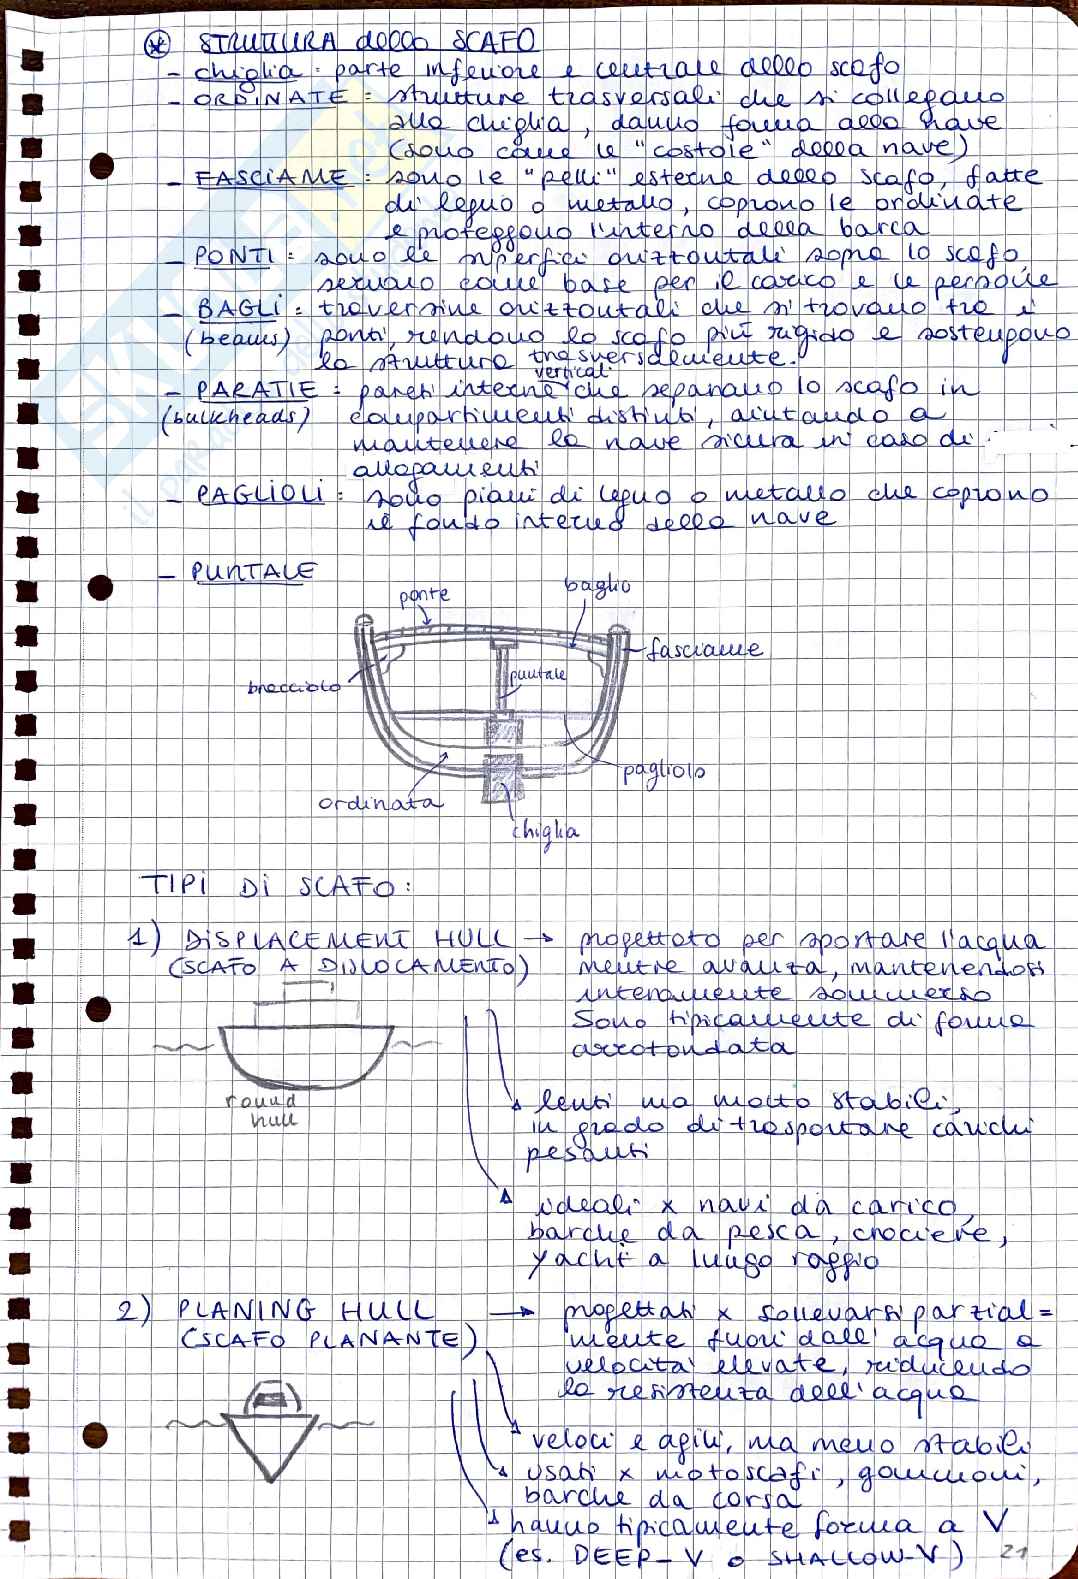 STRUTTURA dello SCAFO
- chiglia: parte inferiore e centrale dello scafo
- ORDINATE: strutture trasversali che si collegano
alla chiglia, danno forma alla nave
(sono come le "costole" della nave)
- FASCIAME: sono le "pelli" esterne dello scafo, fatte
di legno o metallo, coprono le ordinate
e proteggono l'interno della barca
- PONTI: sono le superfici orizzontali sopra lo scafo,
servono come base per il carico e le persone
- BAGLI: traversine orizzontali che si trovano tra i
(beams) ponti, rendono lo scafo più rigido e sostengono
la struttura trasversalmente.
verticali
- PARATIE: pareti interne che separano lo scafo in
(bulkheads) compartimenti distinti, aiutando a
mantenere la nave sicura in caso di
allagamenti
- PAGLIOLI: sono piani di legno o metallo che coprono
il fondo interno della nave
- PUNTALE
ponte
baglio
fasciame
puntale
bracciolo
pagliolo
ordinata
chiglia
TIPI DI SCAFO:
1) DISPLACEMENT HULL → progettato per spostare l'acqua
(SCAFO A DISLOCAMENTO) mentre avanza, mantenendosi
interamente sommerso
Sono tipicamente di forma
arrotondata
round
hull
lenti ma molto stabili,
in grado di trasportare carichi
pesanti
ideali x navi da carico,
barche da pesca, crociere,
yacht a lungo raggio
2) PLANING HULL → progettati x sollevarsi parzial=
(SCAFO PLANANTE) mente fuori dall'acqua a
velocità elevate, riducendo
la resistenza dell'acqua
veloci e agili, ma meno stabili
usati x motoscafi, gommoni,
barche da corsa
hanno tipicamente forma a V
(es. DEEP-V o SHALLOW-V)
21